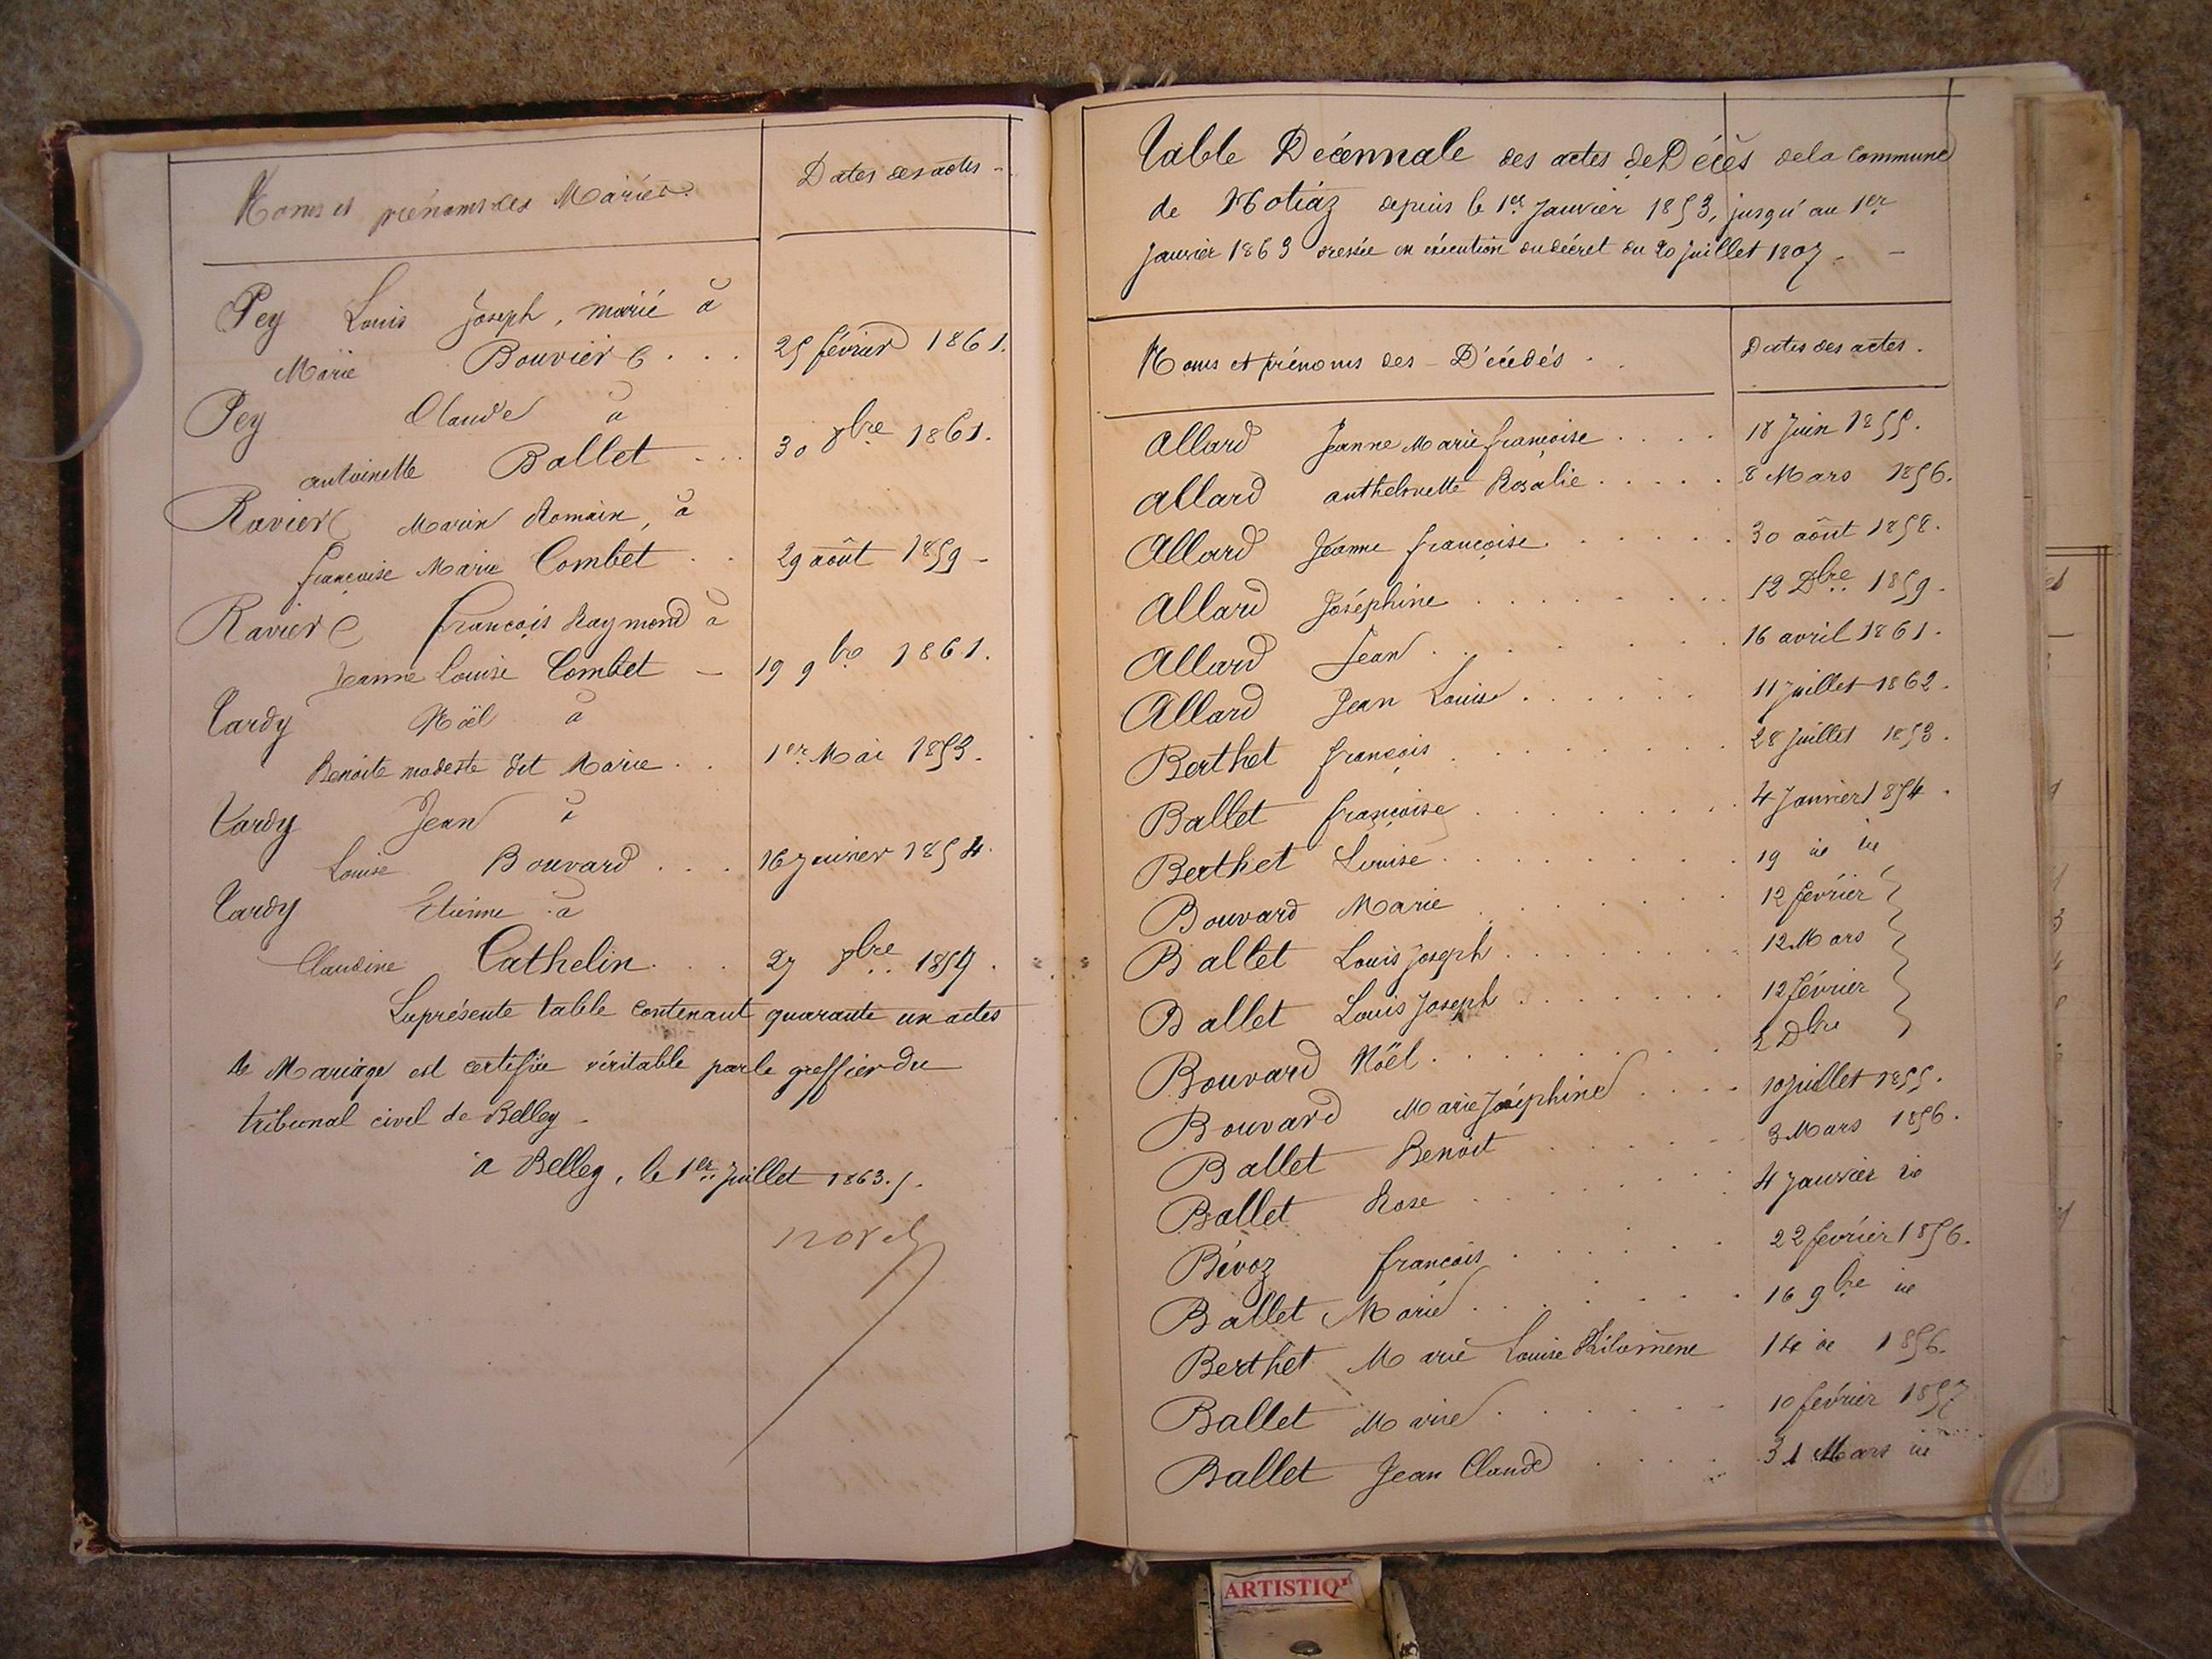 Noms et prénoms des Mariés.
Dates des actes -
Pey Louis Joseph, marié à
Marie Bouvier . . . 25 février 1861.
Pey Claude à
antoinette Ballet - . . 30 8bre 1861.
Ravier Marin Romain, à
françoise Marie Combet . . 29 août 1859 -
Ravier François Raymond à
Jeanne Louise Combet - 19 9bre 1861.
Tardy Noël à
Benoite modeste dit Marie . . 1er Mai 1853.
Tardy Jean à
Louise Bouvard . . . 16 Janvier 1854.
Tardy Etienne à
Claudine Cathelin . . . 27 8bre 1854.
La présente table contenant quarante un actes
de Mariage est certifiée véritable par le greffier du
tribunal civil de Belley -
a Belley, le 1er Juillet 1863.
Table Décennale des actes de Décès de la commune
de depuis le 1er Janvier 1853, jusqu'au 1er
Janvier 1863 dressée en exécution du décret du 20 Juillet 1807 - -
Noms et prénoms des - Décédés .
Dates des actes.
Allard Jeanne Marie françoise . . . . 18 Juin 1855.
Allard anthelmette Rosalie . . . . . 8 Mars 1856.
Allard Jeanne françoise . . . . . . 30 août 1858.
Allard Joséphine . . . . . . . . 12 Dbre 1859.
Allard Jean . . . . . . 16 avril 1861.
Allard Jean Louis . . . . . . 11 Juillet 1862.
Berthet françois . . . . . . . . 28 Juillet 1853.
Ballet françoise . . . . . . . . 4 Janvier 1854.
Berthet Louise . . . . . . . . 19 id id
Bouvard Marie . . . . . . . 12 février
Ballet Louis Joseph . . . . . . . 12 Mars
Ballet Louis Joseph . . . . . . . 12 février
Bouvard Noël . . . . . . . . 2 Dbre
Bouvard Marie Joséphine . . . . 10 Juillet 1855.
Ballet Benoit . . . . . . 3 Mars 1856.
Ballet Rose . . . . . . . 4 Janvier id
Bévoz francois . . . . . . 22 février 1856.
Ballet Marie . . . . . . . 16 9bre id
Berthet Marie Louise Philomène 14 id 1856.
Ballet Marie . . . . . . 10 février 1857
Ballet Jean Claude . . . . 31 Mars id
ARTISTIQ